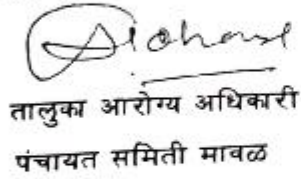 तालुका आरोग्य अधिकारी
पंचायत समिती मावळ